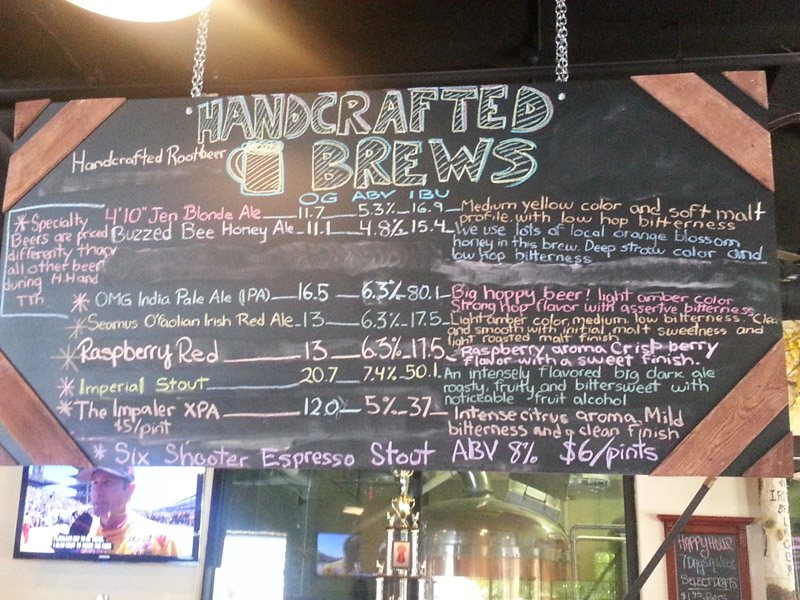 HANDCRAFTED
BREWS
Handcrafted Rootbeer
OG ABV IBU
* Specialty
Beers are priced
differently than
all other beer
during H.H and
TTH
4'10" Jen Blonde Ale 11.7 5.3% 16.9 Medium yellow color and soft malt
profile with low hop bitterness
Buzzed Bee Honey Ale 11.1 4.8% 15.4 We use lots of local orange blossom
honey in this brew. Deep straw color and
low hop bitterness
* OMG India Pale Ale (IPA) 16.5 6.3% 80.1 Big hoppy beer! light amber color
Strong hop flavor with assertive bitterness
Seamus O'faolian Irish Red Ale 13 6.3% 17.5 Light amber color, medium, low bitterness. Clean
and smooth with initial malt sweetness and
light roasted malt finish
* Raspberry Red 13 6.3% 17.5 Raspberry aroma Crisp berry
flavor with a sweet finish.
* Imperial Stout 20.7 7.4% 50.1 An intensely flavored big dark ale
roasty, fruity and bittersweet with
noticeable fruit alcohol
* The Impaler XPA 12.0 5% 37 Intense citrus aroma. Mild
$5/pint bitterness and a clean finish
* Six Shooter Espresso Stout ABV 8% $6/pints
HAPPY HOUR
7 DAYS A WEEK
SELECT DRAFTS